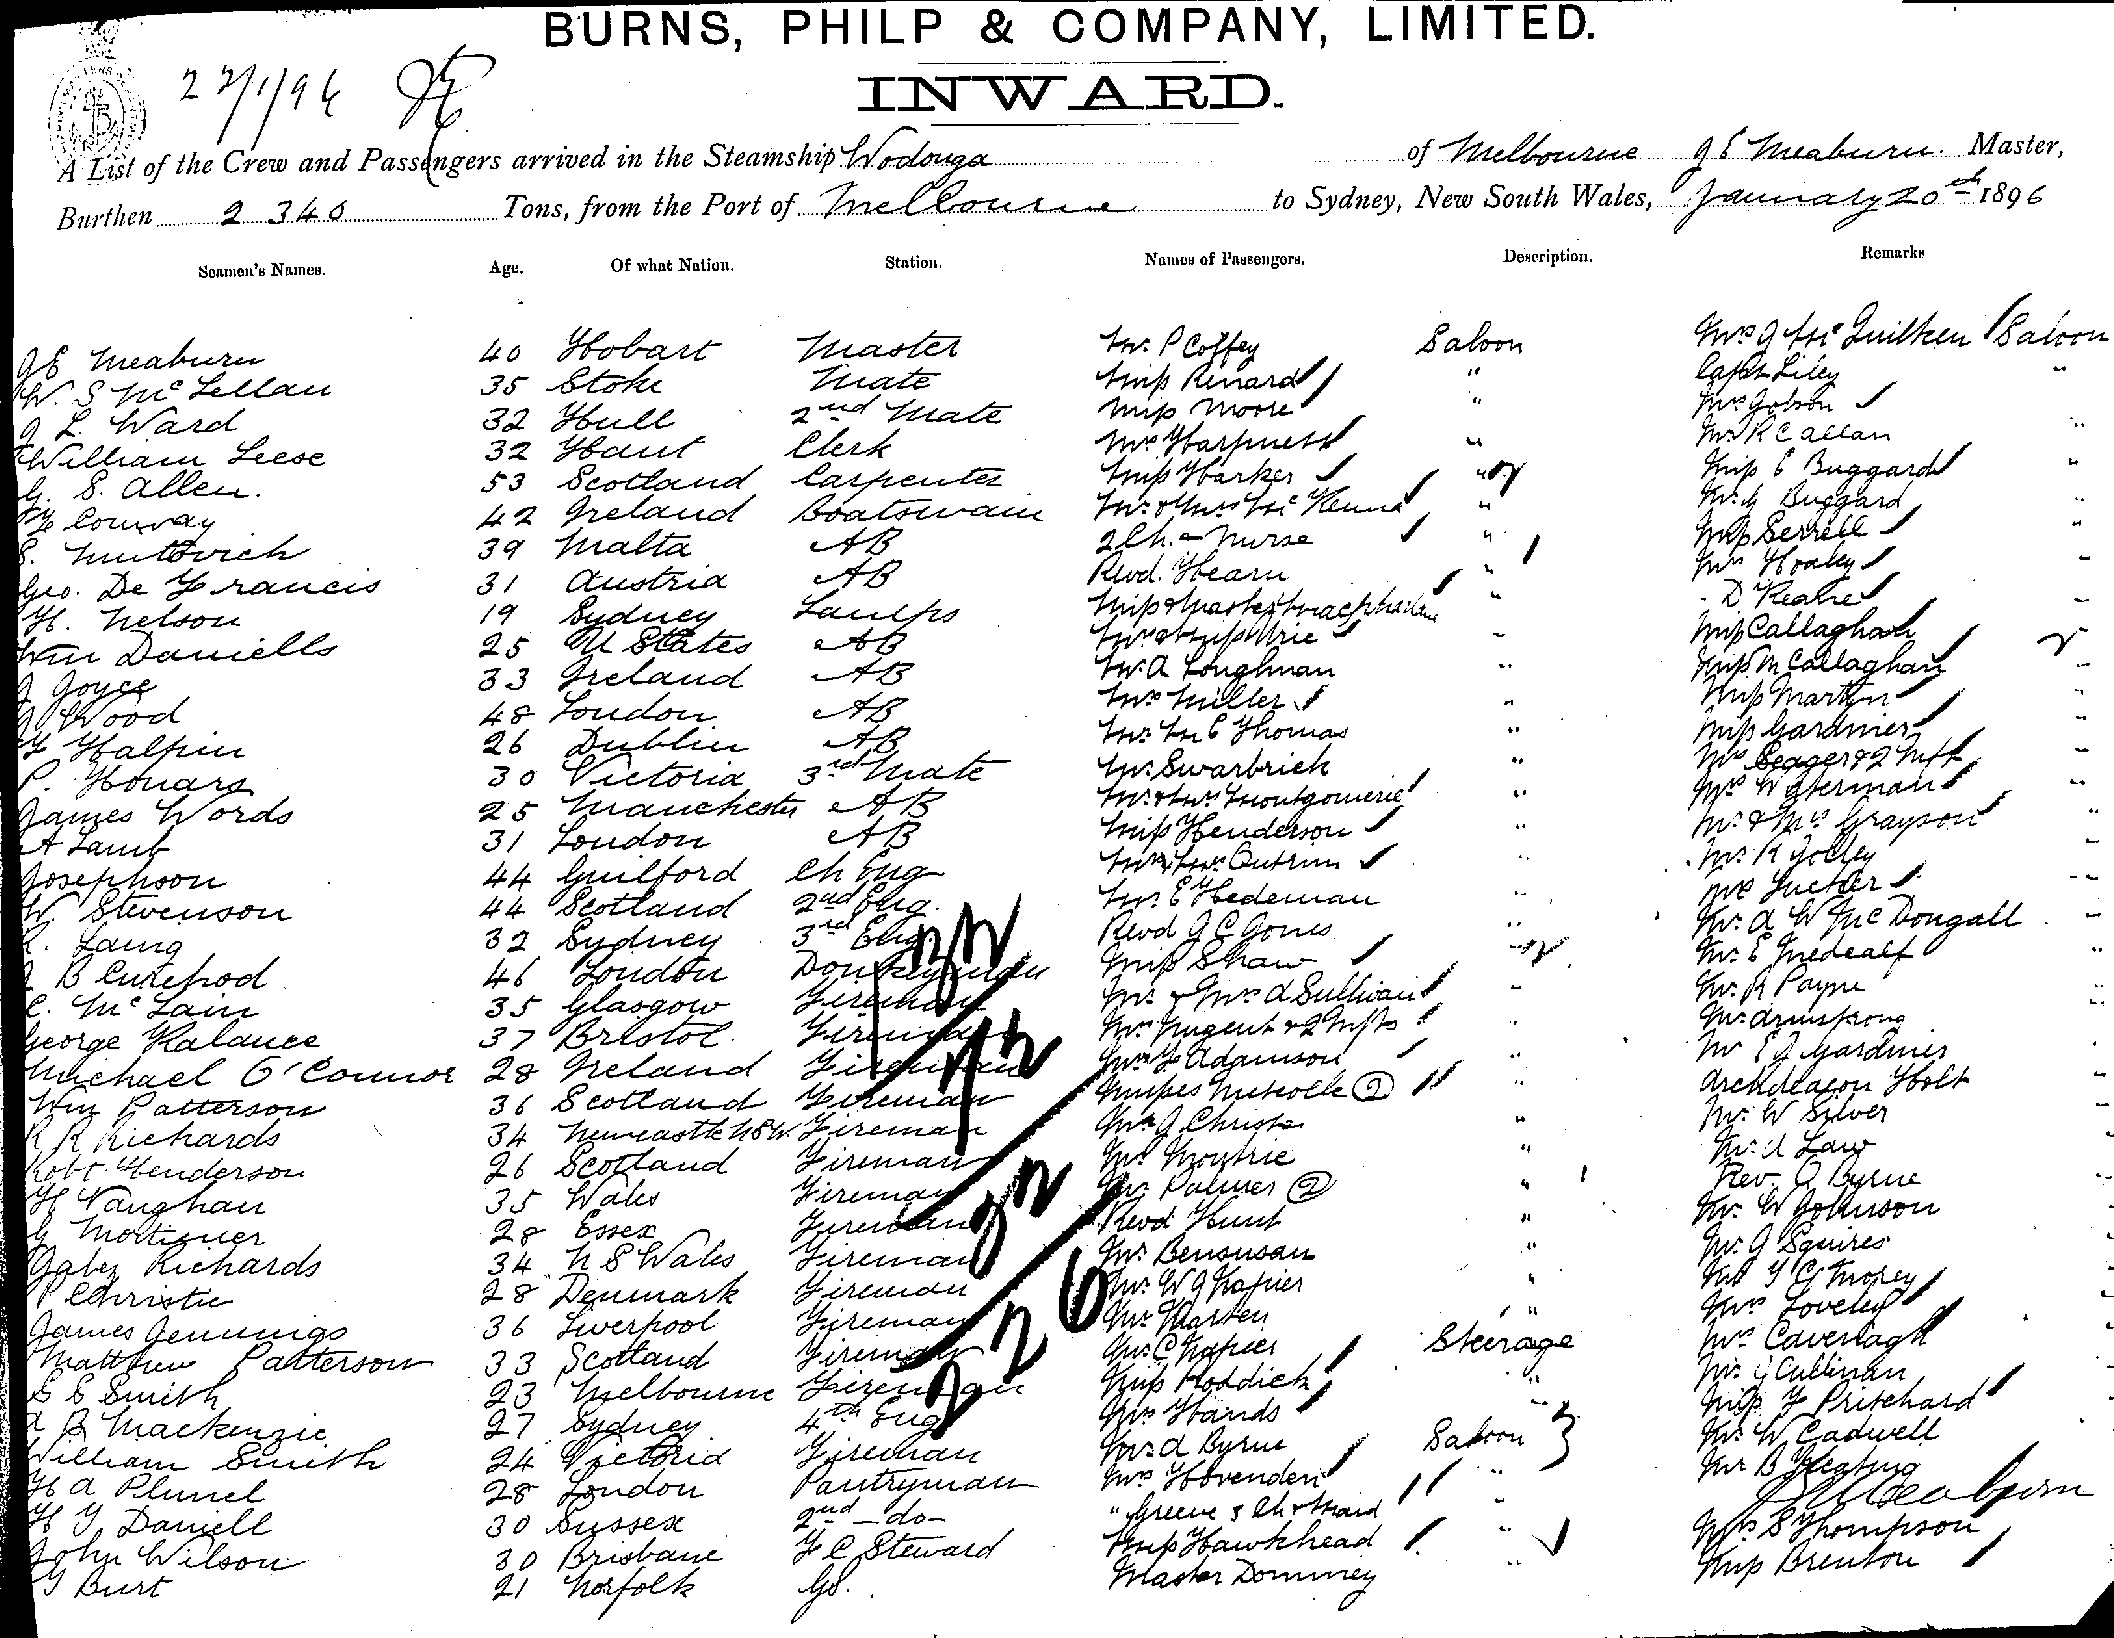 BURNS, PHILP & COMPANY, LIMITED.
22/1/96
INWARD.
A List of the Crew and Passengers arrived in the Steamship Wodonga of Melbourne J E Meaburn. Master,
Burthen 2340 Tons, from the Port of Melbourne to Sydney, New South Wales, January 20th 1896
Seamen's Names. Age. Of what Nation. Station. Names of Passengers. Description. Remarks
J E Meaburn 40 Hobart Master Mr. P Coffey Saloon Mrs J Mc Quilken Saloon
W. S Mc Lellan 35 Stoke Mate Miss Renard " Capt Liley "
J L. Ward 32 Hull 2nd Mate Miss Moore " Mrs Gobson
William Leese 32 Hant Clerk Mr Harkness " Mr R C Allan "
G. S. Allen. 53 Scotland Carpenter Miss Harker " Miss E Buggard "
Conway 42 Ireland Boatswain Mr & Mrs Mc Kenna " Mr G Buggard "
S. Mutovich 39 Malta AB 2 Ch. & Nurse " Miss Serrell "
Geo. De Francis 31 Austria AB Revd. Hearn " Mrs Hoaley "
H. Nelson 19 Sydney Lamps Miss & Master Macphailan " D Keane "
Wm Daniells 25 U States AB Mr & Miss Urie " Miss Callaghan
J Joyce 33 Ireland AB Mr. A Loughnan " Miss M Callaghan "
J Wood 48 London AB Mrs Miller " Miss Martyn "
F Halpin 26 Dublin AB Mr. M E Thomas " Miss Gardiner "
P. Honars 30 Victoria 3rd Mate Mr. Swarbrick " Mrs Seager & 2 Inft "
James Words 25 Manchester AB Mr & Mrs Montgomerie " Mrs Waterman "
A Lamb 31 London AB Miss Henderson " Mr. & Mrs Grayson "
Josephson 44 Guilford Ch Eng Mr & Mrs Outrim " Mr. R Jolley
W. Stevenson 44 Scotland 2nd Eng. Mr. E Hedeman " Mrs Tucker "
R. Laing 32 Sydney 3rd Eng Revd J C Jones " Mr. A W McDougall "
J B Curephod 46 London Donkeyman Miss Shaw " Mr. E Medcalf "
C. Mc Lain 35 Glasgow Fireman Mr. & Mrs A Sullivan " Mr. R Payne "
George Kalanee 37 Bristol. Fireman Mrs Nugent & 2 Infts " Mr Armstrong
Michael O'Connor 28 Ireland Fireman Mrs F Adamson " Mr E J Gardiner
Wm Patterson 36 Scotland Fireman Misses Nicholle (2) " Archdeacon Holt
R R Richards 34 Newcastle NSW. Fireman Mr. J Christe " Mr. W Silver
Robt. Henderson 26 Scotland Fireman Mr Moytrie " Mr. A Law
H Vaughan 35 Wales Fireman Mr. Palmer (2) " Rev. J Byrne
G Mortimer 28 Essex Fireman Revd Hunt " Mr. W Johnson
Jabez Richards 34 N S Wales Fireman Mr. Bensusan " Mr. J Squires
P Christie 28 Denmark Fireman Mr. W J Napier " Mr F G Morey
James Jennings 36 Liverpool Fireman Mr Marten " Mrs Lovely
Matthew Patterson 33 Scotland Fireman Mrs C Napier Steerage Mrs Cavenagh
S E Smith 23 Melbourne Fireman Miss Roddick " Mr. J Cullinan
A B Mackenzie 27 Sydney 4th Eng Mrs Hands " Miss F Pritchard
William Smith 24 Victoria Fireman Mr. A Byrne Saloon Mr. W Cadwell
H A Plunel 28 London Pantryman Mrs Hovenden " Mr B Keating
H Y Daniell 30 Sussex 2nd -do- " Greeve & Ch & Maid " J E Meaburn
John Wilson 30 Brisbane F C Steward Miss Hawkhead " Mrs S Thompson
G Burt 21 Norfolk Gs. Master Dommey " Miss Brenton